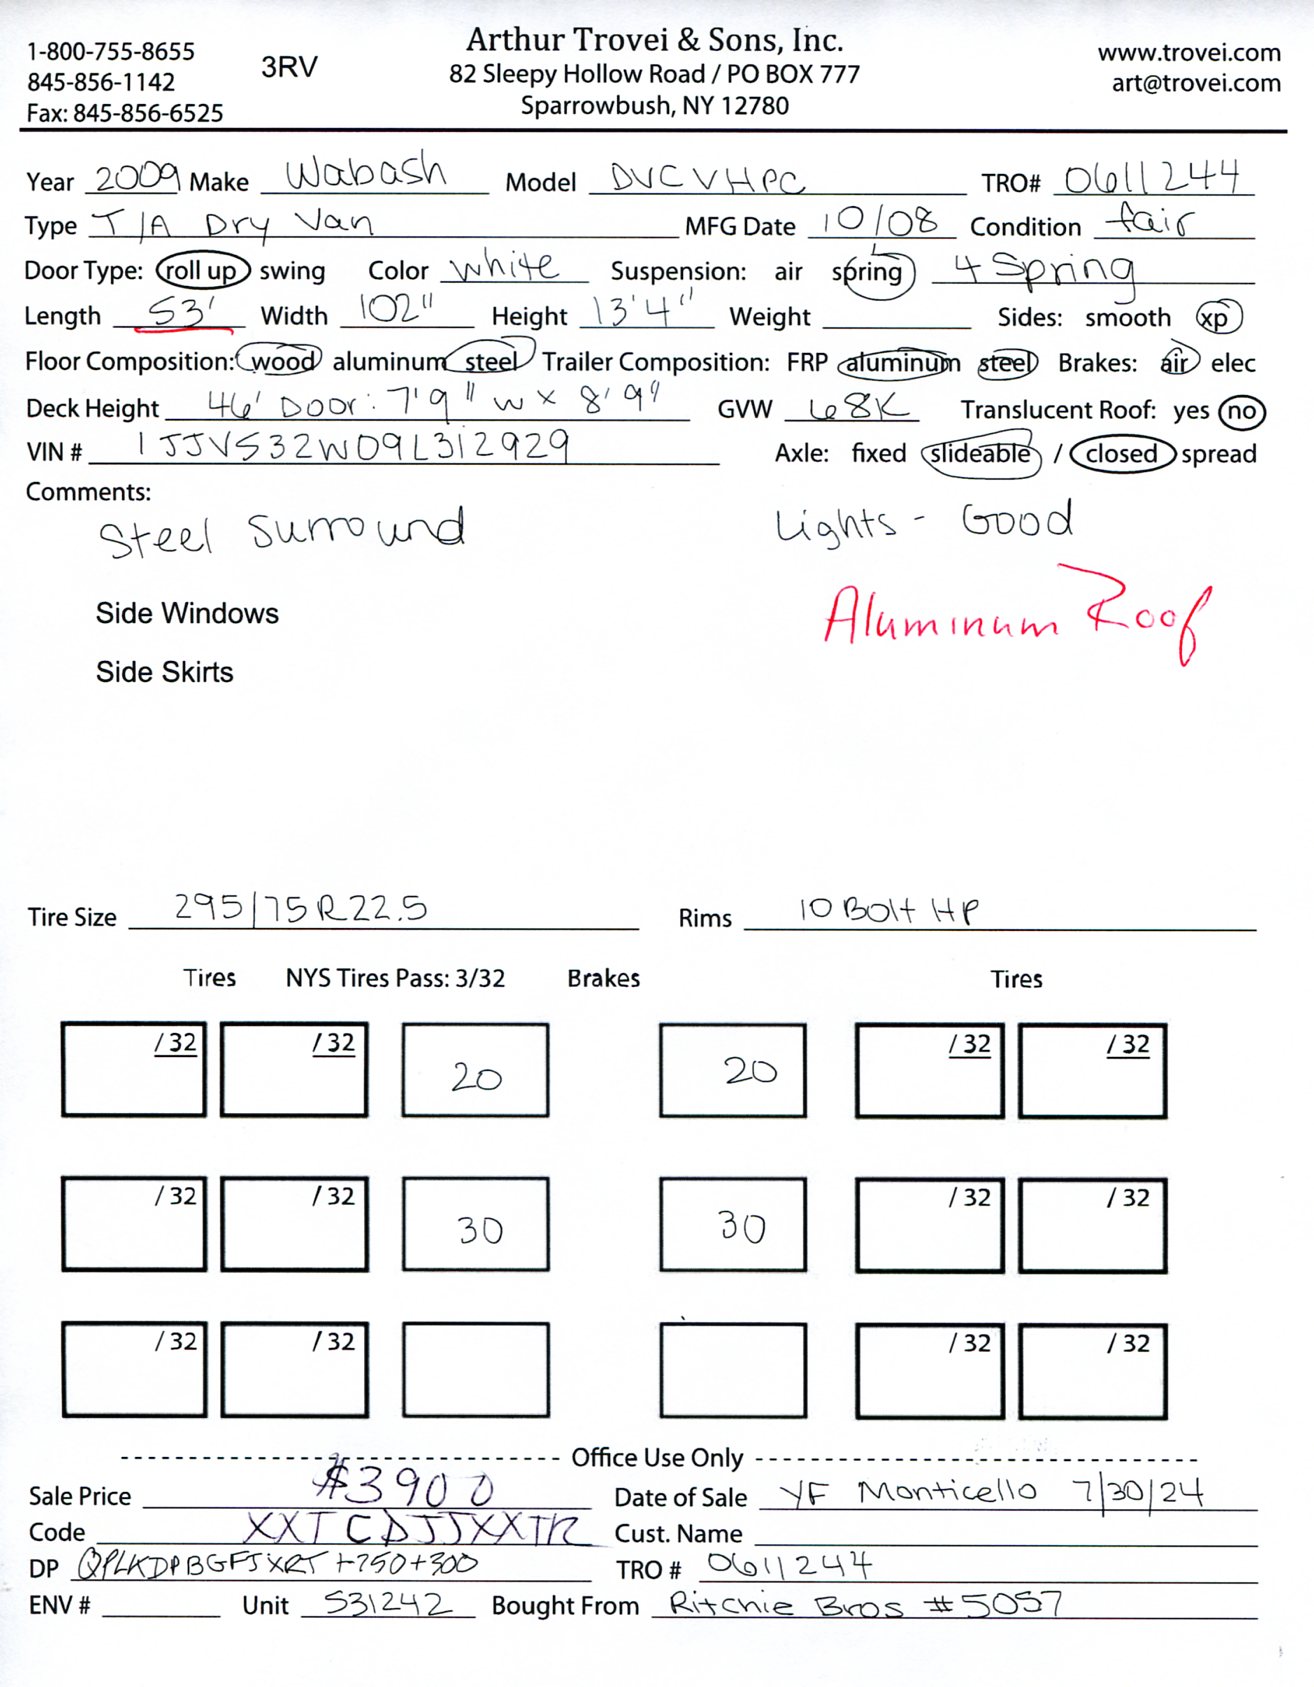 1-800-755-8655
845-856-1142
Fax: 845-856-6525
3RV
Arthur Trovei & Sons, Inc.
82 Sleepy Hollow Road / PO BOX 777
Sparrowbush, NY 12780
www.trovei.com
art@trovei.com
Year 2009 Make Wabash Model DVCVHPC TRO# 0611244
Type T/A Dry Van MFG Date 10/08 Condition fair
Door Type: roll up swing Color white Suspension: air spring 4 Spring
Length 53' Width 102" Height 13'4" Weight Sides: smooth xp
Floor Composition: wood aluminum steel Trailer Composition: FRP aluminum steel Brakes: air elec
Deck Height 46' Door: 7'9" w x 8'9" GVW 68K Translucent Roof: yes no
VIN # 1JJV532W09L312929 Axle: fixed slideable / closed spread
Comments:
Steel Surround Lights - Good
Side Windows Aluminum Roof
Side Skirts
Tire Size 295/75R22.5 Rims 10 Bolt HP
Tires NYS Tires Pass: 3/32 Brakes Tires
/ 32 / 32 20 20 / 32 / 32
/ 32 / 32 30 30 / 32 / 32
/ 32 / 32 / 32 / 32
Office Use Only
Sale Price $3900 Date of Sale YF Monticello 7/30/24
Code Cust. Name
DP +750+300 TRO # 0611244
ENV # Unit 531242 Bought From Ritchie Bros #5057